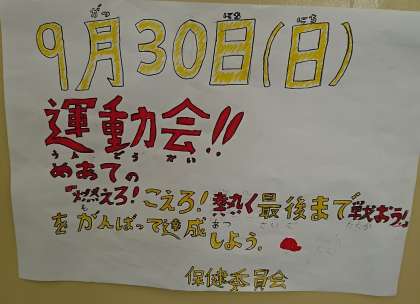 9月30日(日)
運動会!!
めあての
"燃えろ!こえろ!熱く最後まで戦おう!"
をがんばって達成しよう。
保健委員会